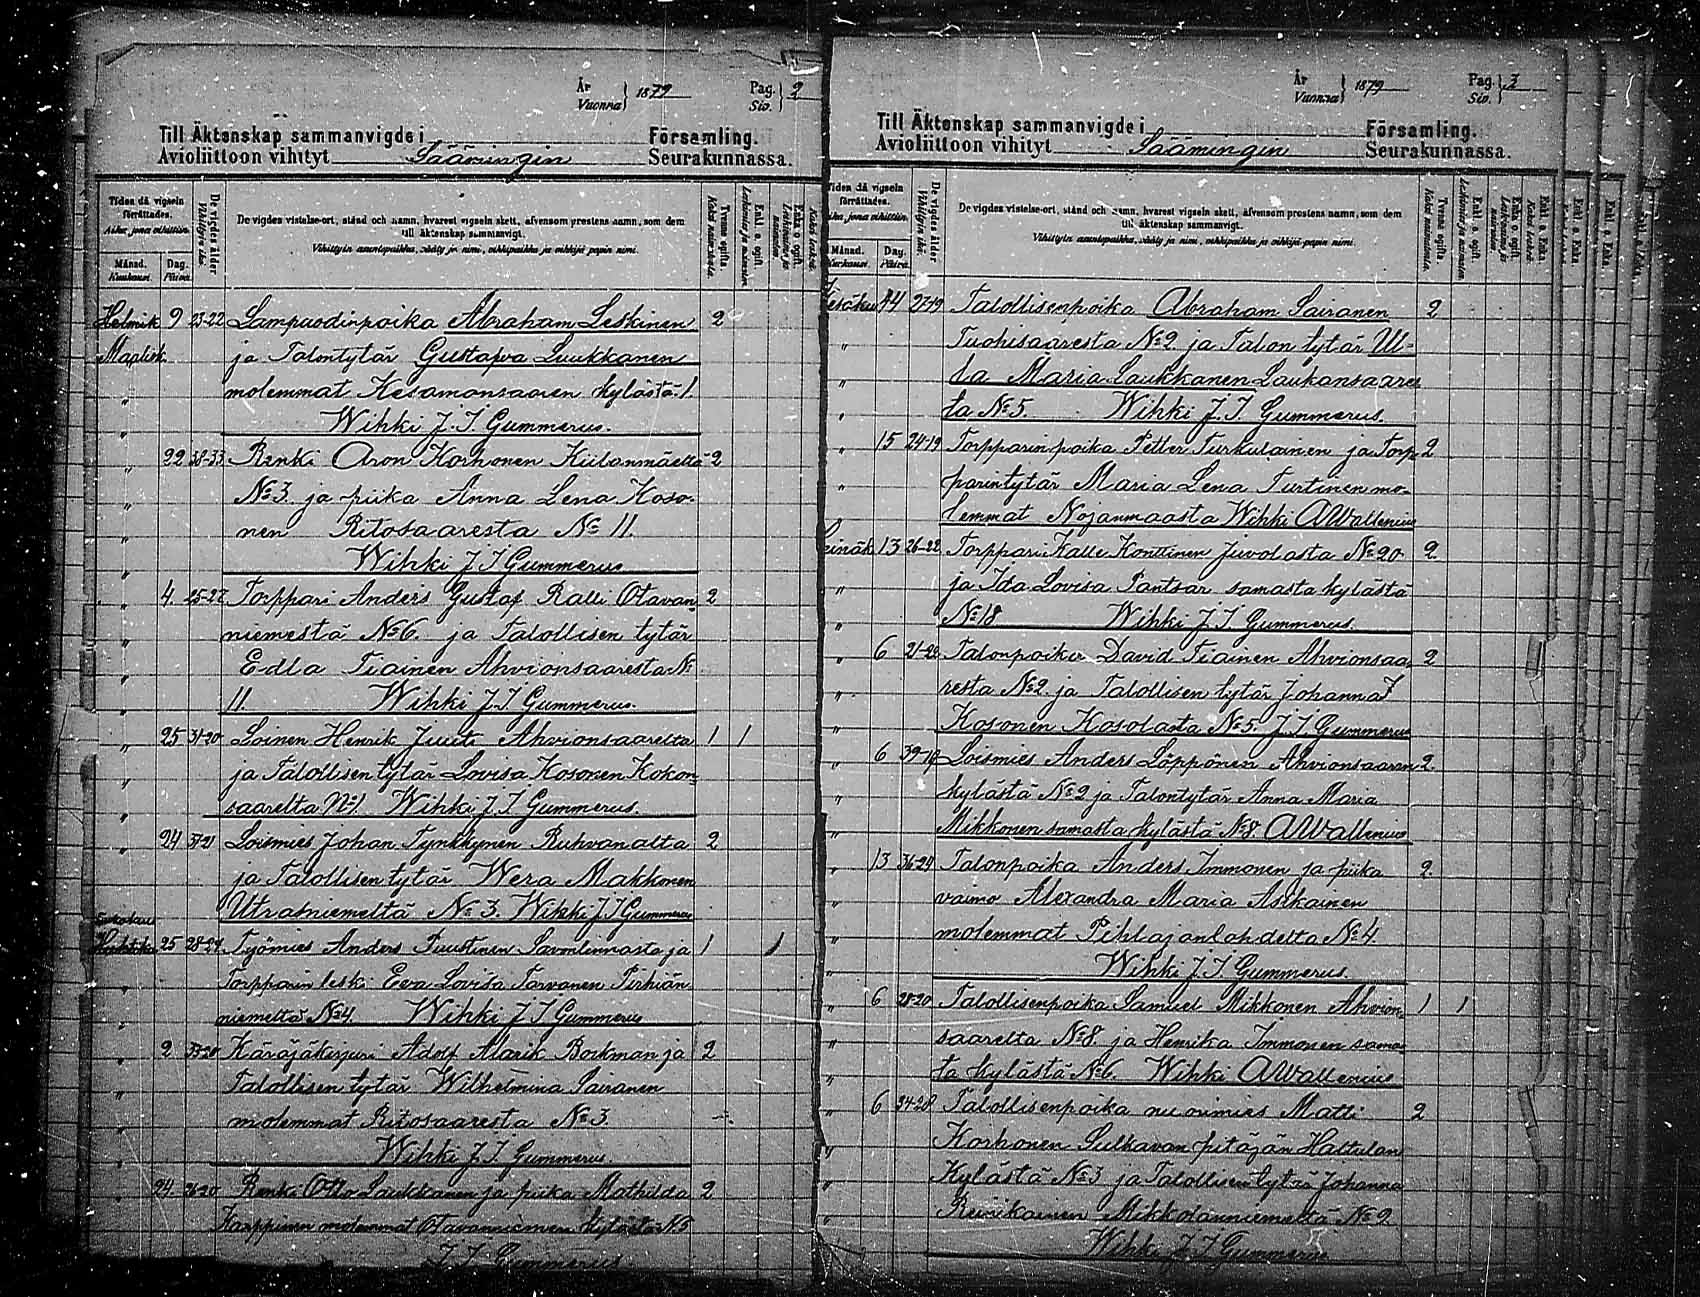 År
Vuonna } 1879 Pag. Siv. } 2
Till Äktenskap sammanvigde i Församling.
Avioliittoon vihityt Säämingin Seurakunnassa.
Tiden då vigseln förrättades.
Aika, jona vihittiin.
Månad. Kuukausi. Dag. Päivä.
De vigdes ålder
Vihittyin ikä.
De vigdes vistelse-ort, stånd och namn, hvarest vigseln skett, äfvensom prestens namn, som dem
till äktenskap sammanvigt.
Vihittyin asuntopaikka, sääty ja nimi, vihkipaikka ja vihkijä-papin nimi.
Tvenne ogifta.
Enkl. o. ogift.
Helmik 9 23-22 Lampuodinpoika Abraham Leskinen 2
Maalisk. ja Talontytär Gustafva Luukkanen
" molemmat Kesamonsaaren kylästä 1.
" Wihki J. I. Gummerus.
" 22 38-33 Renki Aron Korhonen Kiilanmäeltä 2
" No 3. ja piika Anna Lena Koso-
" nen Ritosaaresta No 11.
" Wihki J I Gummerus
" 4. 25-27 Torppari Anders Gustaf Ralli Otavan 2
" niemestä No 6. ja Talollisen tytär
" Edla Tiainen Ahvionsaaresta No
" 11. Wihki J. I. Gummerus.
" 25 31-20 Loinen Henrik Juuti Ahvionsaarelta 1 1
" ja Talollisen tytär Lovisa Kosonen Kokon
" saarelta No 1. Wihki J. I Gummerus.
" 24 37-21 Loismies Johan Tynkkynen Ruhvanalta 2
" ja Talollisen tytär Wera Makkonen
" Utrasniemeltä No 3. Wihki J I Gummerus
Huhtiku 25 28-27 Työmies Anders Puustinen Savonlinnasta ja 1 1
" Torpparin leski Eva Lovisa Tarvanen Pirhiän
" niemeltä No 4. Wihki J I Gummerus
" 2 33-20 Käräjäkirjuri Adolf Alarik Borkman ja 2
" Talollisen tytär Wilhelmina Sairanen
" molemmat Ritosaaresta No 3.
" Wihki J I Gummerus.
" 24. 26-20 Renki Otto Laukkanen ja piika Mathilda 2
Karppinen molemmat Otavanniemen kylästä No 5
J. I. Gummerus
År
Vuonna } 1879 Pag. Siv. } 3
Till Äktenskap sammanvigde i Församling.
Avioliittoon vihityt Säämingin Seurakunnassa.
Tiden då vigseln förrättades.
Aika, jona vihittiin.
Månad. Kuukausi. Dag. Päivä.
De vigdes ålder
Vihittyin ikä.
De vigdes vistelse-ort, stånd och namn, hvarest vigseln skett, äfvensom prestens namn, som dem
till äktenskap sammanvigt.
Vihittyin asuntopaikka, sääty ja nimi, vihkipaikka ja vihkijä-papin nimi.
Tvenne ogifta.
Enkl. o. ogift.
Kesäku 14 27-19 Talollisenpoika Abraham Sairanen 2
" Tuohisaaresta No 2 ja Talon tytär Ul-
" la Maria Laukkanen Laukansaares
" ta No 5. Wihki J. I Gummerus.
" 15 24-19 Torpparinpoika Petter Turkulainen ja Torp 2
" parintytär Maria Lena Turtinen mo-
" lemmat Nojanmaasta Wihki A Wallenius
Heinäk 13 26-22 Torppari Kalle Konttinen Juvolasta No 20 2.
" ja Ida Lovisa Pantsar samasta kylästä
" No 18 Wihki J. I. Gummerus.
" 6 21-22 Talonpoika David Tiainen Ahvionsaa- 2
" resta No 2 ja Talollisen tytär Johanna
" Kosonen Kosolasta No 5 J. I. Gummerus
" 6 39-19 Loismies Anders Löppönen Ahvionsaaren 2.
" kylästä No 2 ja Talontytär Anna Maria
" Mikkonen samasta kylästä No 8 A Wallenius
" 13 36-24 Talonpoika Anders Immonen ja piika 2.
" vaimo Alexandra Maria Asikainen
" molemmat Pihlajanlahdelta No 4.
" Wihki J. I Gummerus.
" 6 28-20 Talollisenpoika Samuel Mikkonen Ahvion 1 1
" saarelta No 8 ja Henrika Immonen samas
" ta kylästä No 6. Wihki A Wallenius
" 6 24-28 Talollisenpoika nuorimies Matti 2
" Korhonen Sulkavan pitäjän Haltulan
" Kylästä No 3 ja Talollisen tytär Johanna
" Reinikainen Mikkolanniemeltä No 2
Wihki J I Gummerus